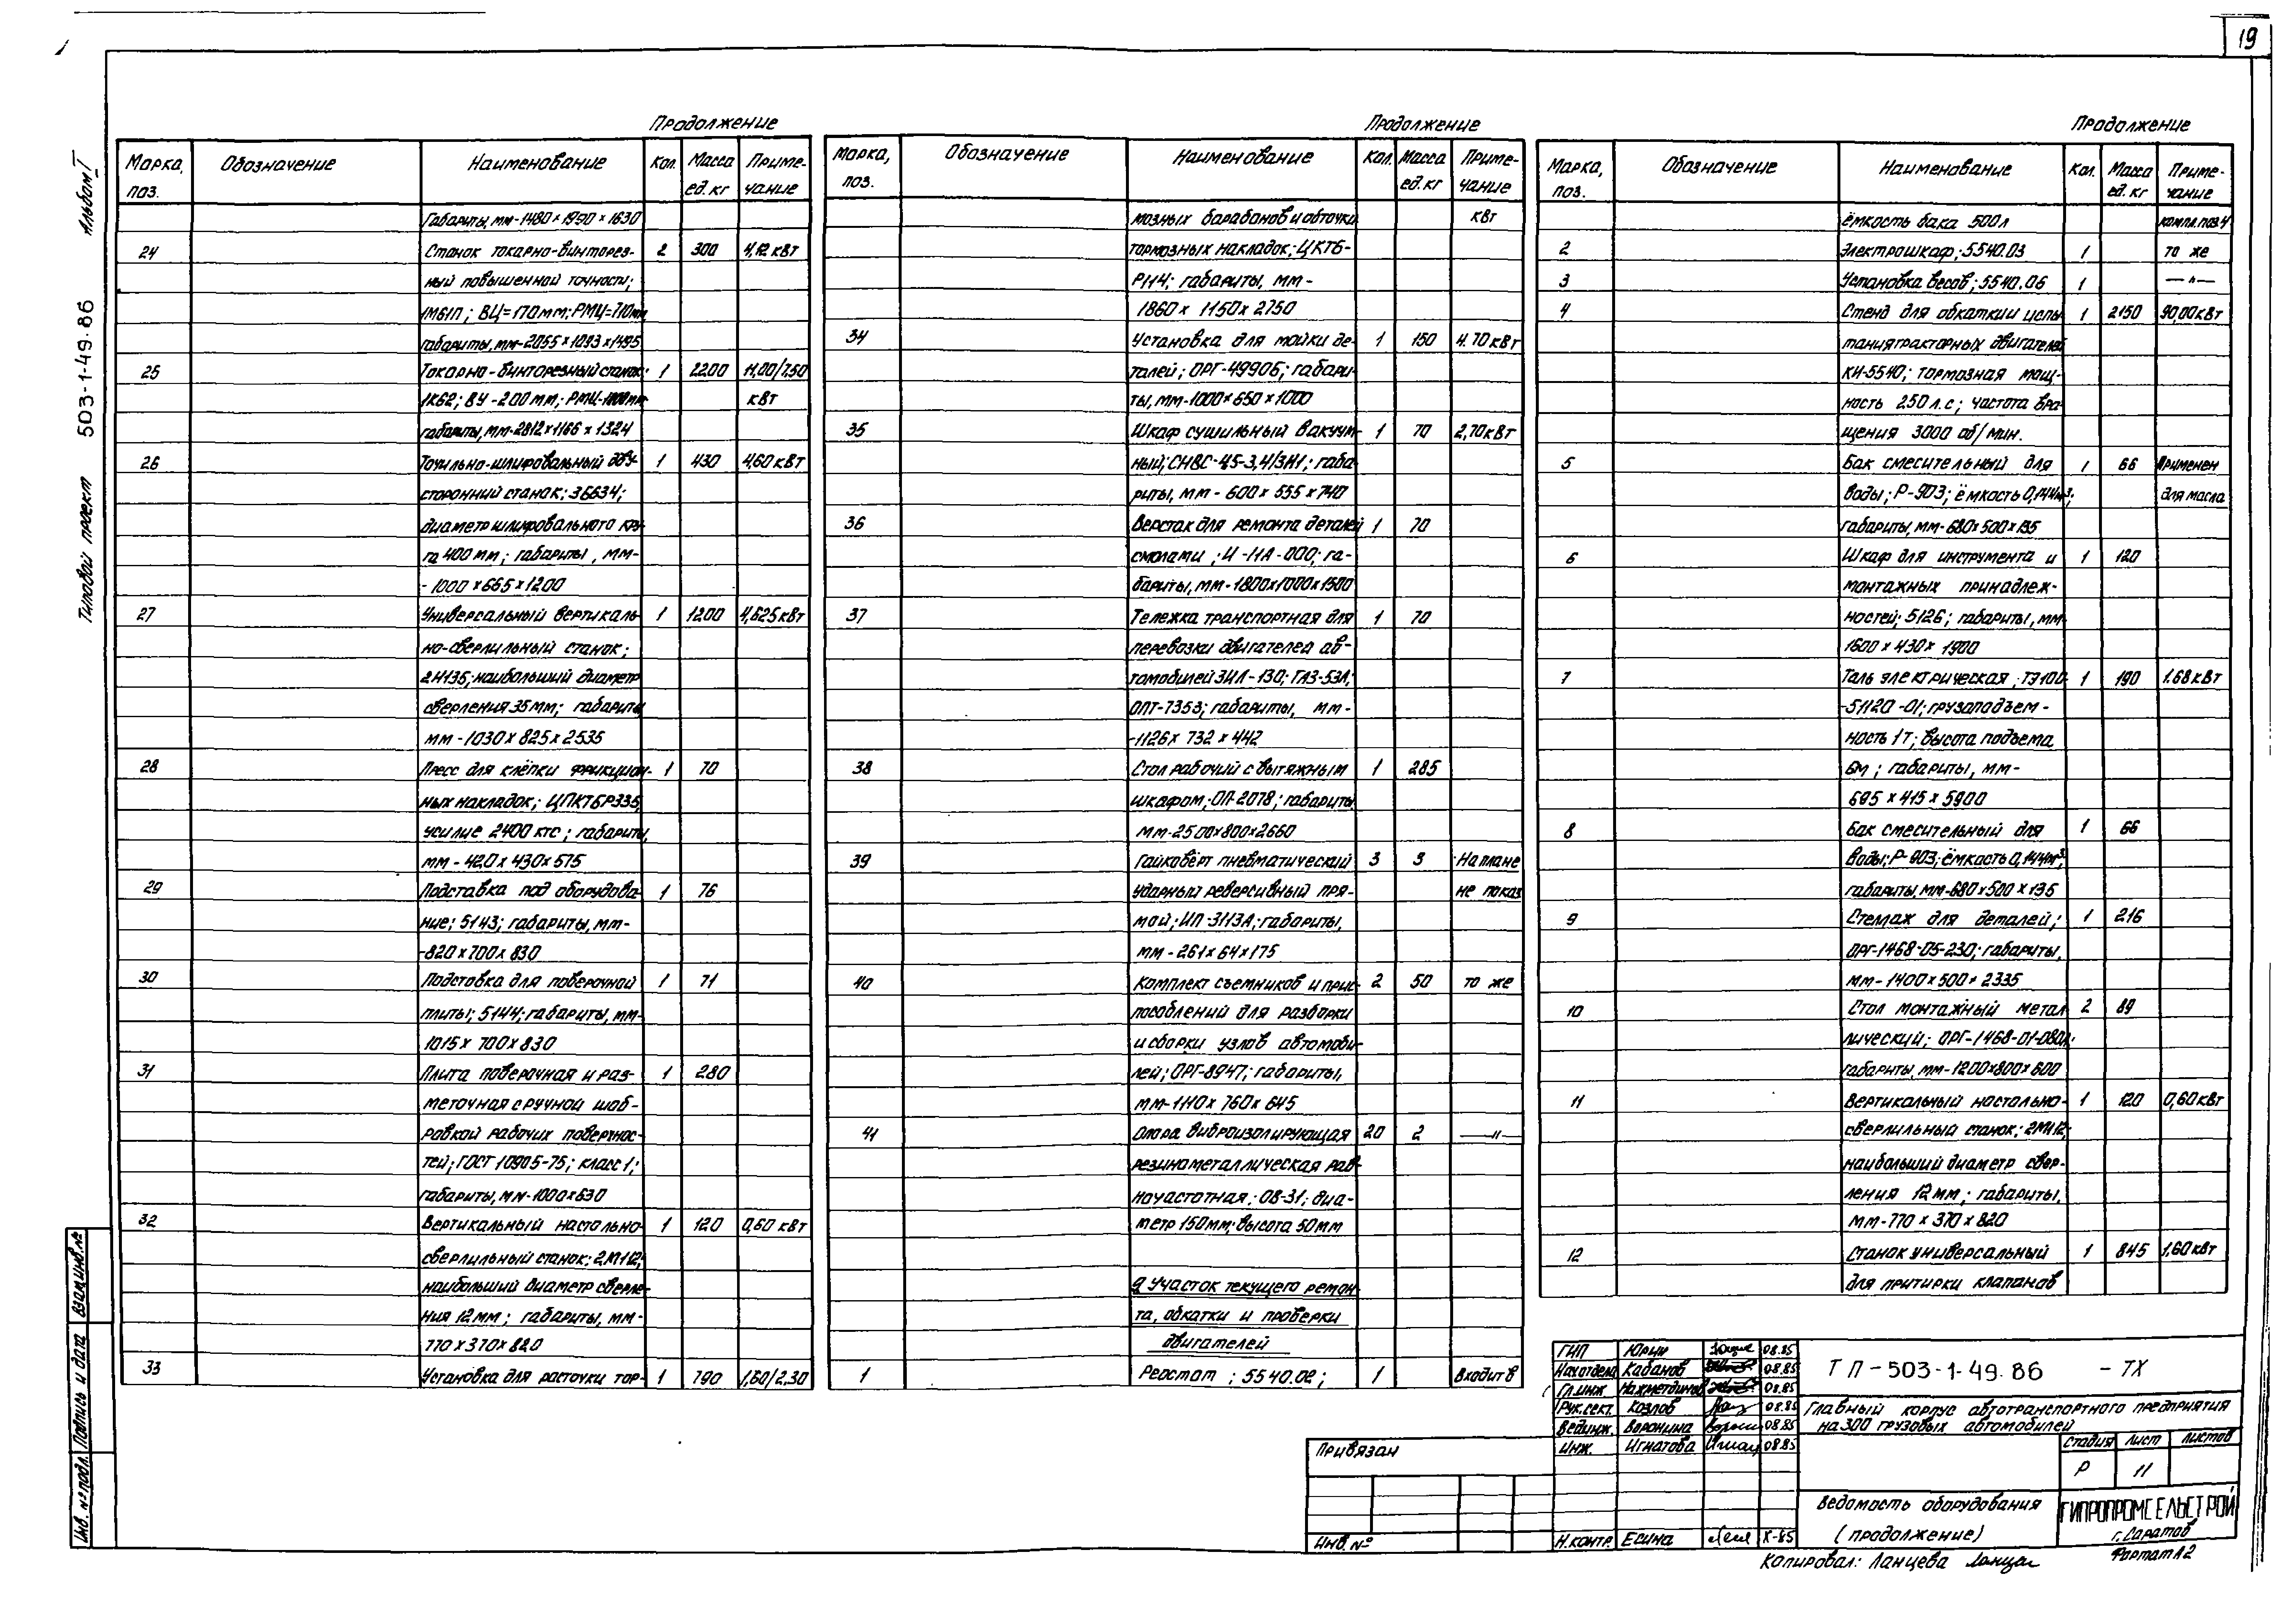 19
Альбом I
Типовой проект 503-1-49.86
Продолжение
Марка, поз. Обозначение Наименование Кол. Масса ед. кг Примечание
Габариты, мм-1480×1990×1630
24 Станок токарно-винторез- 2 300 4,12 кВт
ный повышенной точности;
1М61П; ВЦ=170мм; РМЦ=710мм
габариты, мм-2055×1093×1495
25 Токарно-винторезный станок; 1 2200 11,00/7,50
1К62; ВЧ-200мм; РМЦ-1000мм кВт
габариты, мм-2812×1166×1324
26 Точильно-шлифовальный дву- 1 430 4,60 кВт
сторонний станок; 3Б634;
диаметр шлифовального кру-
га 400 мм; габариты, мм-
-1000×665×1200
27 Универсальный вертикаль- 1 1200 4,625 кВт
но-сверлильный станок;
2Н135; наибольший диаметр
сверления 35мм; габариты
мм-1030×825×2535
28 Пресс для клёпки фрикцион- 1 70
ных накладок; ЦПКТБР335
усилие 2400 кгс; габариты,
мм-420×430×575
29 Подставка под оборудова- 1 76
ние; 5143; габариты, мм-
-820×700×830
30 Подставка для поверочной 1 71
плиты; 5144; габариты, мм-
1015×700×830
31 Плита поверочная и раз- 1 280
меточная с ручной шаб-
ровкой рабочих поверхнос-
тей; ГОСТ 10905-75; класс 1;
габариты, мм-1000×630
32 Вертикальный настольно- 1 120 0,60 кВт
сверлильный станок; 2М112;
наибольший диаметр сверле-
ния 12мм; габариты, мм-
770×370×820
33 Установка для расточки тор- 1 790 1,60/2,30
Продолжение
Марка, поз. Обозначение Наименование Кол. Масса ед. кг Примечание
мозных барабанов и обточки кВт
тормозных накладок; ЦКТБ-
Р114; габариты, мм-
1860×1150×2750
34 Установка для мойки де- 1 150 4.70 кВт
талей; ОРГ-4990Б; габари-
ты, мм-1000×650×1000
35 Шкаф сушильный вакуум- 1 70 2,70 кВт
ный; СНВС-4,5-3,4/3И1; габа-
риты, мм-600×555×740
36 Верстак для ремонта деталей 1 70
смолами; И-11А-000; га-
бариты, мм-1800×1000×1500
37 Тележка транспортная для 1 70
перевозки двигателей ав-
томобилей ЗИЛ-130; ГАЗ-53А;
ОПТ-7353; габариты, мм-
-1126×732×442
38 Стол рабочий с вытяжным 1 285
шкафом; ОП-2078; габариты
мм-2500×800×2660
39 Гайковёрт пневматический 3 3 На плане
ударный реверсивный пря- не показ
мой; ИП-3113А; габариты,
мм-261×64×175
40 Комплект съемников и прис- 2 50 то же
пособлений для разборки
и сборки узлов автомоби-
лей; ОРГ-8947; габариты,
мм-1110×760×645
41 Опора виброизолирующая 20 2 —"—
резинометаллическая рав-
ночастотная; ОВ-31; диа-
метр 150мм; высота 50мм
9 Участок текущего ремон-
та, обкатки и проверки
двигателей
1 Реостат; 5540.02; 1 Входит в
Продолжение
Марка, поз. Обозначение Наименование Кол. Масса ед. кг Примечание
ёмкость бака 500л компл.поз.4
2 Электрошкаф; 5540.03 1 то же
3 Установка весов; 5540.06 1 —"—
4 Стенд для обкатки и испы- 1 2150 90,00 кВт
тания тракторных двигателей
КИ-5540; тормозная мощ-
ность 250 л.с; частота вра-
щения 3000 об/мин.
5 Бак смесительный для 1 66 Применен
воды; Р-903; ёмкость 0,144м³; для масла
габариты, мм-680×500×135
6 Шкаф для инструмента и 1 120
монтажных принадлеж-
ностей; 5126; габариты, мм-
1600×430×1900
7 Таль электрическая; ТЭ100- 1 190 1.68 кВт
-51120-01; грузоподъем-
ность 1т; высота подъема
6м; габариты, мм-
695×415×5900
8 Бак смесительный для 1 66
воды; Р-903; ёмкость 0,144м³,
габариты, мм-680×500×135
9 Стеллаж для деталей; 1 216
ОРГ-1468-05-230; габариты,
мм-1400×500×2335
10 Стол монтажный метал 2 89
лический; ОРГ-1468-01-080А;
габариты, мм-1200×800×600
11 Вертикальный настольно- 1 120 0,60 кВт
сверлильный станок; 2М112;
наибольший диаметр свер-
ления 12мм; габариты,
мм-770×370×820
12 Станок универсальный 1 845 1,60 кВт
для притирки клапанов
ГИП Юрин 08.85
Нач.отдела Кабанов 08.85
Гл.инж Нахметдинов 08.85
Рук.сект. Козлов 08.85
Вед.инж. Воронина 08.85
Инж. Игнатова 08.85
Н.контр. Есина X-85
ТП-503-1-49.86 -ТХ
Главный корпус автотранспортного предприятия
на 300 грузовых автомобилей
Стадия Лист Листов
Р 11
Ведомость оборудования
(продолжение)
ГИПРОПРОМСЕЛЬСТРОЙ
г. Саратов
Привязан
Инв. №
Копировал: Ланцева
Формат А2
Взам.инв.№
Подпись и дата
Инв. № подл.